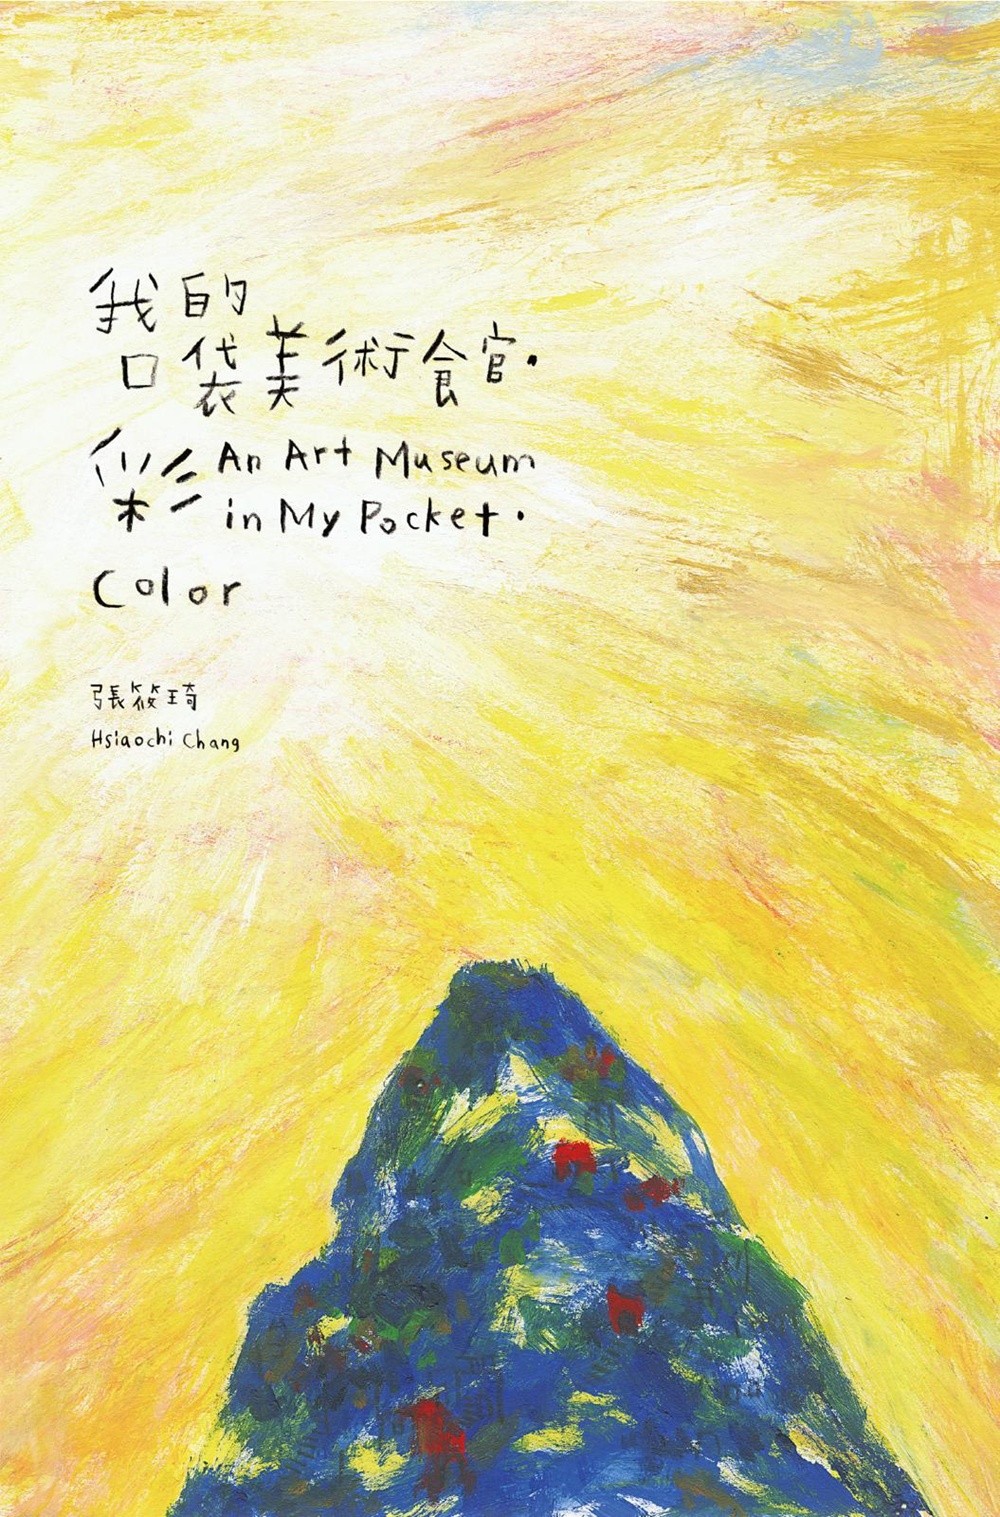 我的
口袋美術館·
彩 An Art Museum
in My Pocket·
Color
張筱琦
Hsiaochi Chang